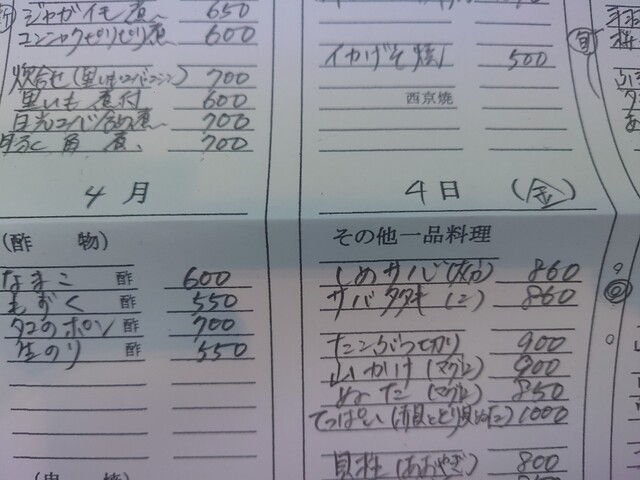 ジャガイモ煮 650
コンニャクピリピリ煮 600
炊合せ(里いも 700
里いも煮付 600
日光 含め煮 700
角煮 700
イカげそ焼 500
西京焼
旬
4月
4日 (金)
(酢 物)
なまこ 酢 600
もずく 酢 550
タコのポン 酢 700
生のり 酢 550
その他一品料理
しめサバ(大分) 860
サバタタキ(〃) 860
たこぶつ切り 900
山かけ(マグロ) 900
ぬた(マグロ) 850
てっぱい(赤貝ととり貝ぬた) 1000
貝柱(あおやぎ) 800